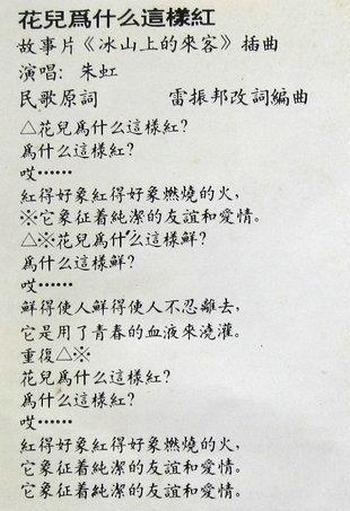 花兒爲什么這樣紅
故事片《冰山上的來客》插曲
演唱: 朱虹
民歌原詞 雷振邦改詞編曲
△花兒爲什么這樣紅?
爲什么這樣紅?
哎……
紅得好象紅得好象燃燒的火,
※它象征着純潔的友誼和愛情。
△※花兒爲什么這樣鮮?
爲什么這樣鮮?
哎……
鮮得使人鮮得使人不忍離去,
它是用了青春的血液來澆灌。
重復△※
花兒爲什么這樣紅?
爲什么這樣紅?
哎……
紅得好象紅得好象燃燒的火,
它象征着純潔的友誼和愛情。
它象征着純潔的友誼和愛情。